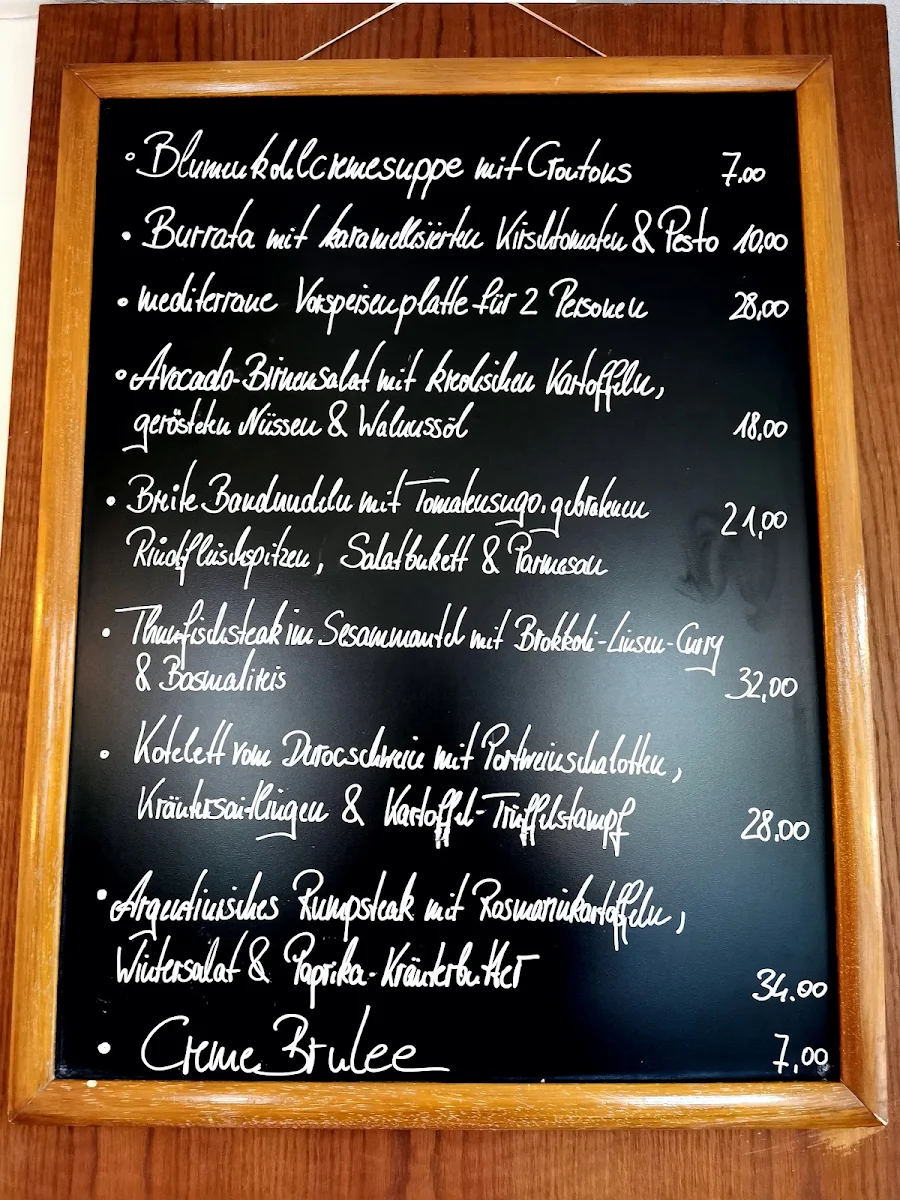 • Blumenkohlcremesuppe mit Croutons 7.00
• Burrata mit karamellisierten Kirschtomaten & Pesto 10,00
• mediterrane Vorspeisenplatte für 2 Personen 28,00
• Avocado-Birnensalat mit kreolischen Kartoffeln,
gerösteten Nüssen & Walnussöl 18,00
• Breite Bandnudeln mit Tomatensugo, gebratenen 21,00
Rindfleischspitzen, Salatbukett & Parmesan
• Thunfischsteak im Sesammantel mit Brokkoli-Linsen-Curry
& Basmatireis 32,00
• Kotelett vom Durocschwein mit Portweinschalotten,
Kräutersaitlingen & Kartoffel-Trüffelstampf 28,00
• Argentinisches Rumpsteak mit Rosmarinkartoffeln,
Wintersalat & Paprika-Kräuterbutter 34.00
• Creme Brulee 7,00